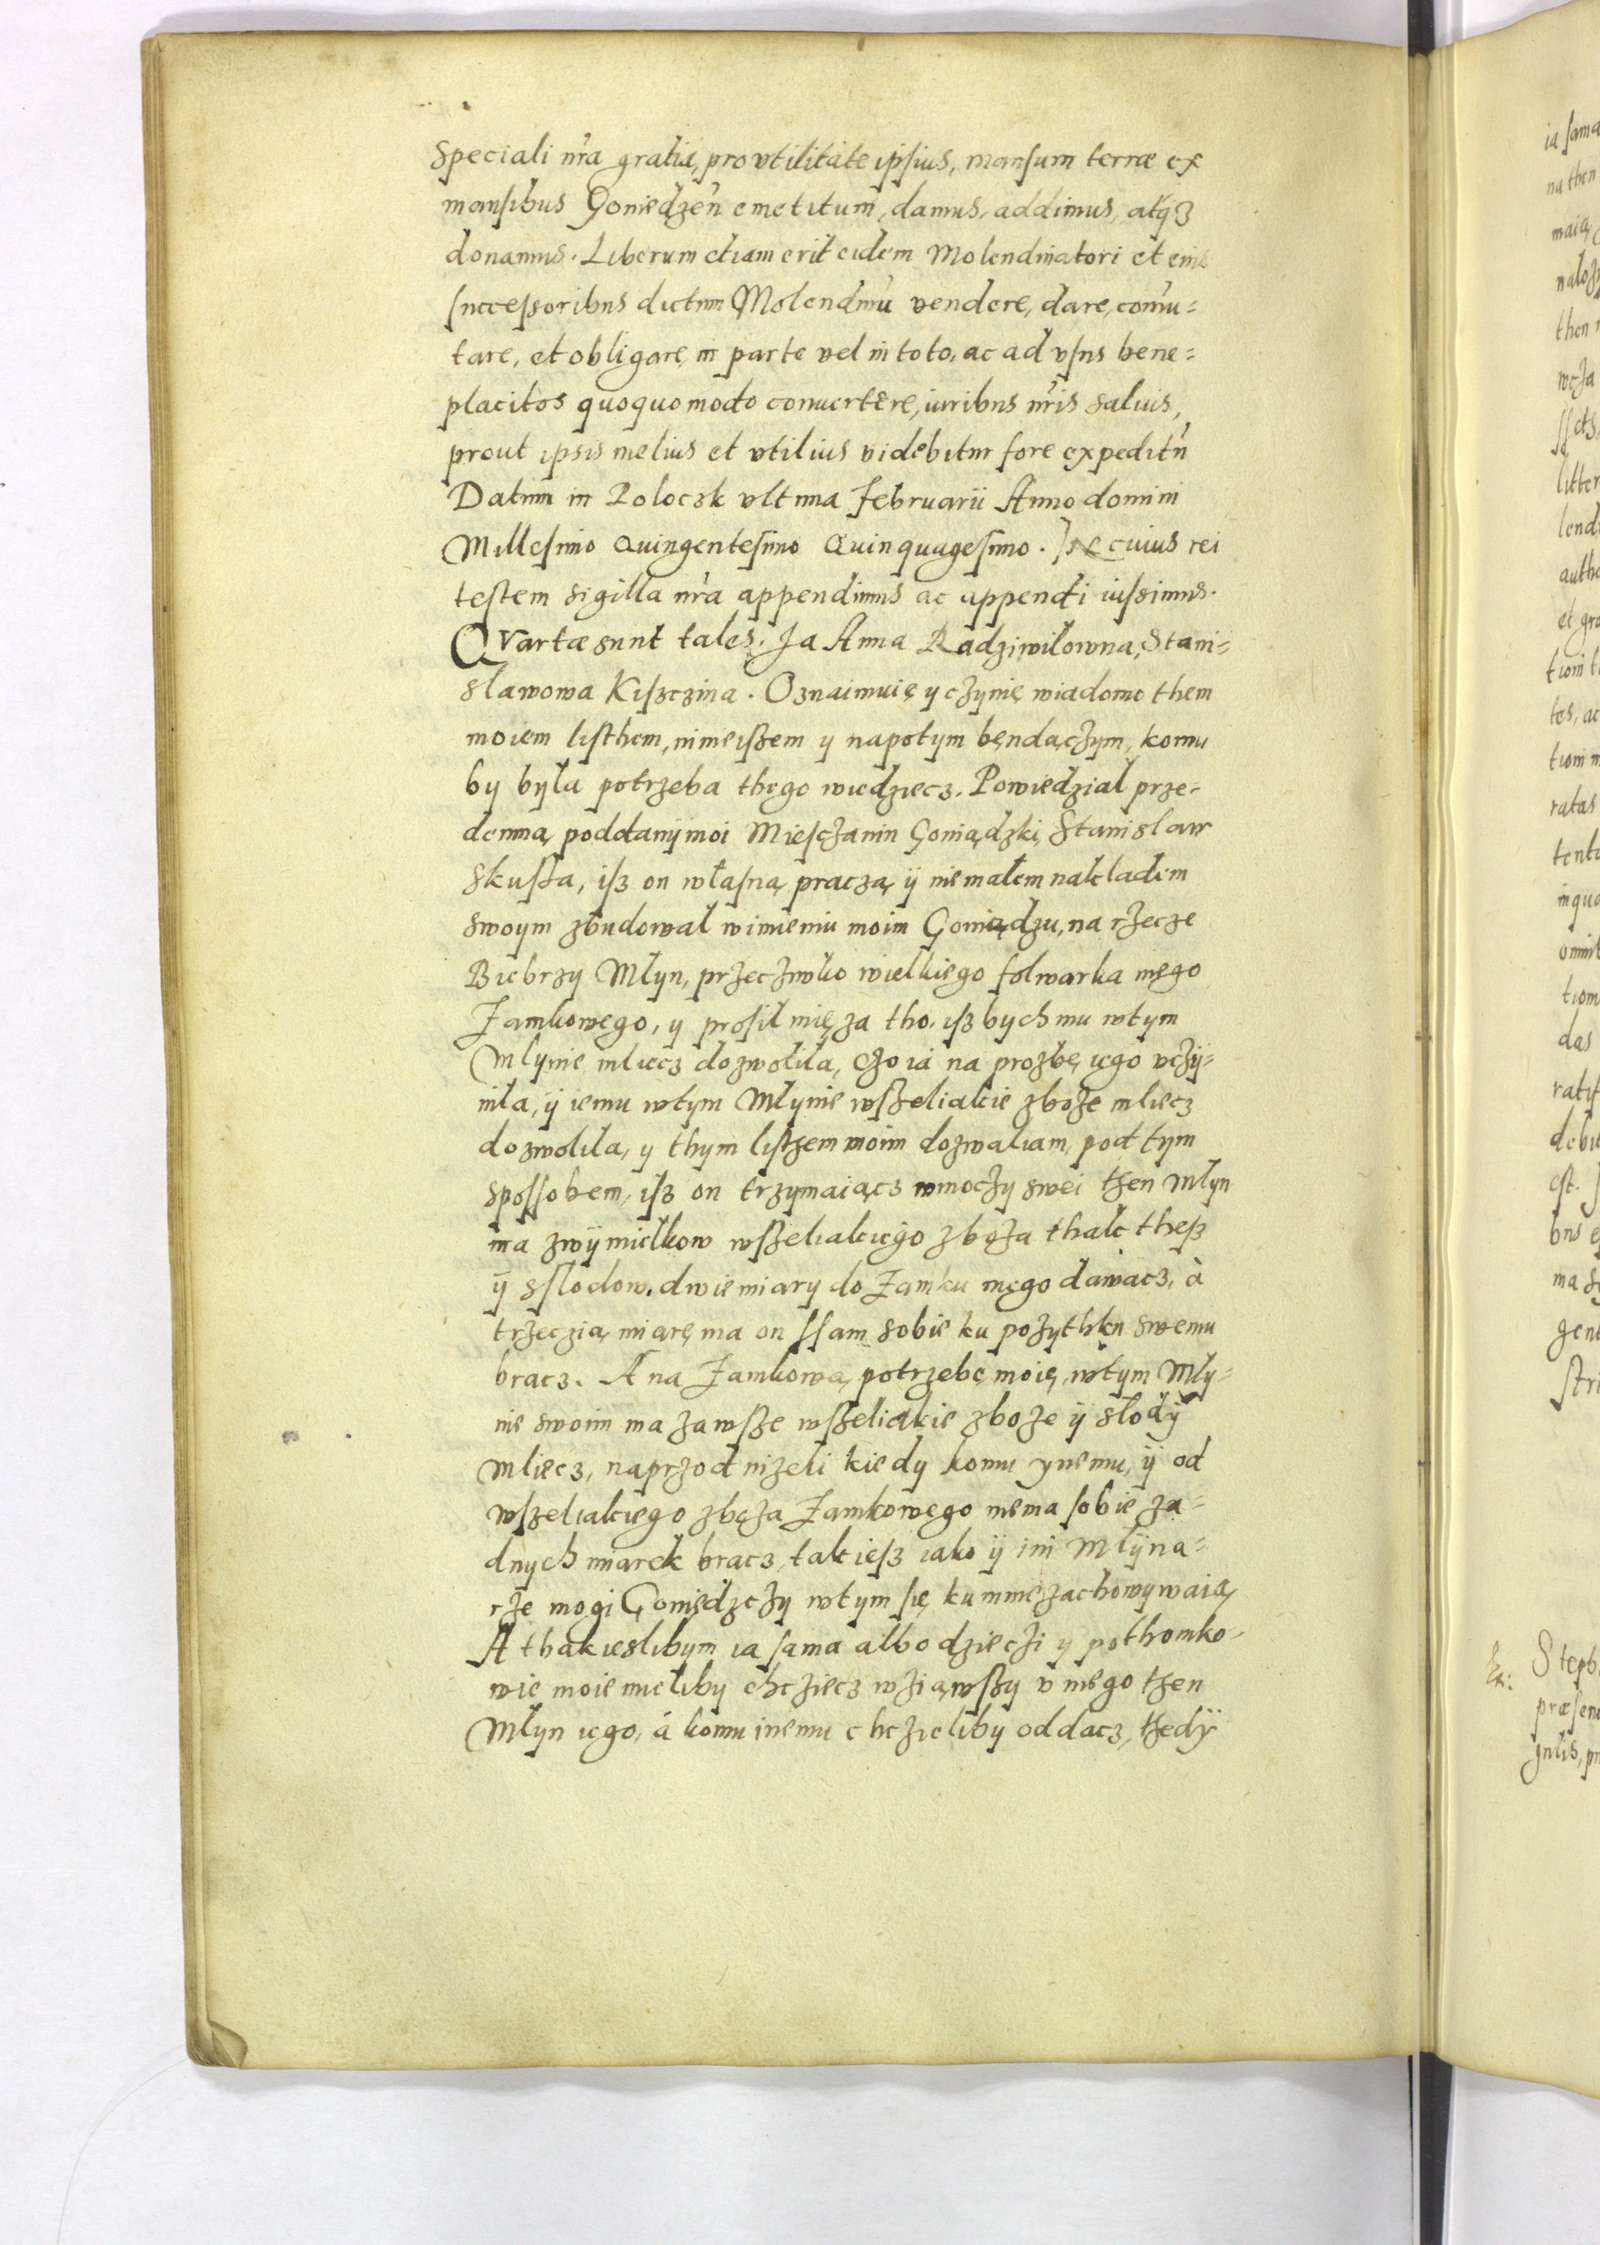 Speciali nr̃a gratia, pro vtilitate ipsius, mansum terræ ex
mansibus Goniedzeñ emetitum, damus, addimus, atq3
donamus. Liberum etiam erit eidem Molendinatori et eius
successoribus dictum Molendinũ vendere, dare, com̃u=
tare, et obligare, in parte vel in toto, ac ad vsus bene=
placitos quoquomodo conuertere, iuribus nr̃is saluis,
prout ipsis melius et vtilius videbitur fore expeditũ
Datum in Poloczk vltima februarii Anno domini
Millesimo Quingentesimo Quinquagesimo. cuius rei
testem sigilla nr̃a appendimus ac appendi iussimus.
QVartæ sunt tales. Ja Anna Radziwilowna, Stani=
slawowa Kiszczina. Oznaimuię y czynię wiadomo them
moiem listhem, ninieiszem y napotym będączym, komu
by była potrzeba thego wiedziecz. Powiedzial prze=
demną poddanÿ moi Miesczanin Goniądzki Stanislaw
Skusza, isz on własną praczą ÿ niemałem nakladem
swoym zbudował w imieniu moim Goniądzu, na rzecze
Biebrzy Młyn, przeczwko wielkiego folwarka mego
Zamkowego, y prosił mię za tho, isz bych mu wtym
Mlynie mliecz dozwoliła, czo iá na prozbę iego vczÿ=
niła, ÿ iemu wtym Młynie wszeliakie zboże mliecz
dozwoliła, y thym listhem moim dozwaliam, pod tym
spossobem, isz on trzymaiącz wmoczy swei then Młyn
ma zwÿmiełkow wszeliakiego zboża thak thesz
ÿ sslodow. dwie miary do Zamku mego dawacz, à
trzeczią miarę ma on ssam sobie ku pożythku swemu
bracz. A na Zamkową potrzebę moię, wtym Mły=
nie swoim ma zawsze wszeliakie zboże ÿ slodÿ
mliecz, naprzod niżeli kiedy komu ynemu, ÿ od
wszeliakiego zboża Zamkowego niema sobie ża=
dnych miarek bracz, takiesz iako ÿ ini Młÿna=
rze mogi Goniędzczy wtym się ku mnie zachowywaią,
A thak ieslibym ia sama albo dzieczi y pothomko=
wie moie mieliby chcziecz wziąwszy v niego then
Młyn iego, á komu inemu chczieliby oddacz, thedÿ